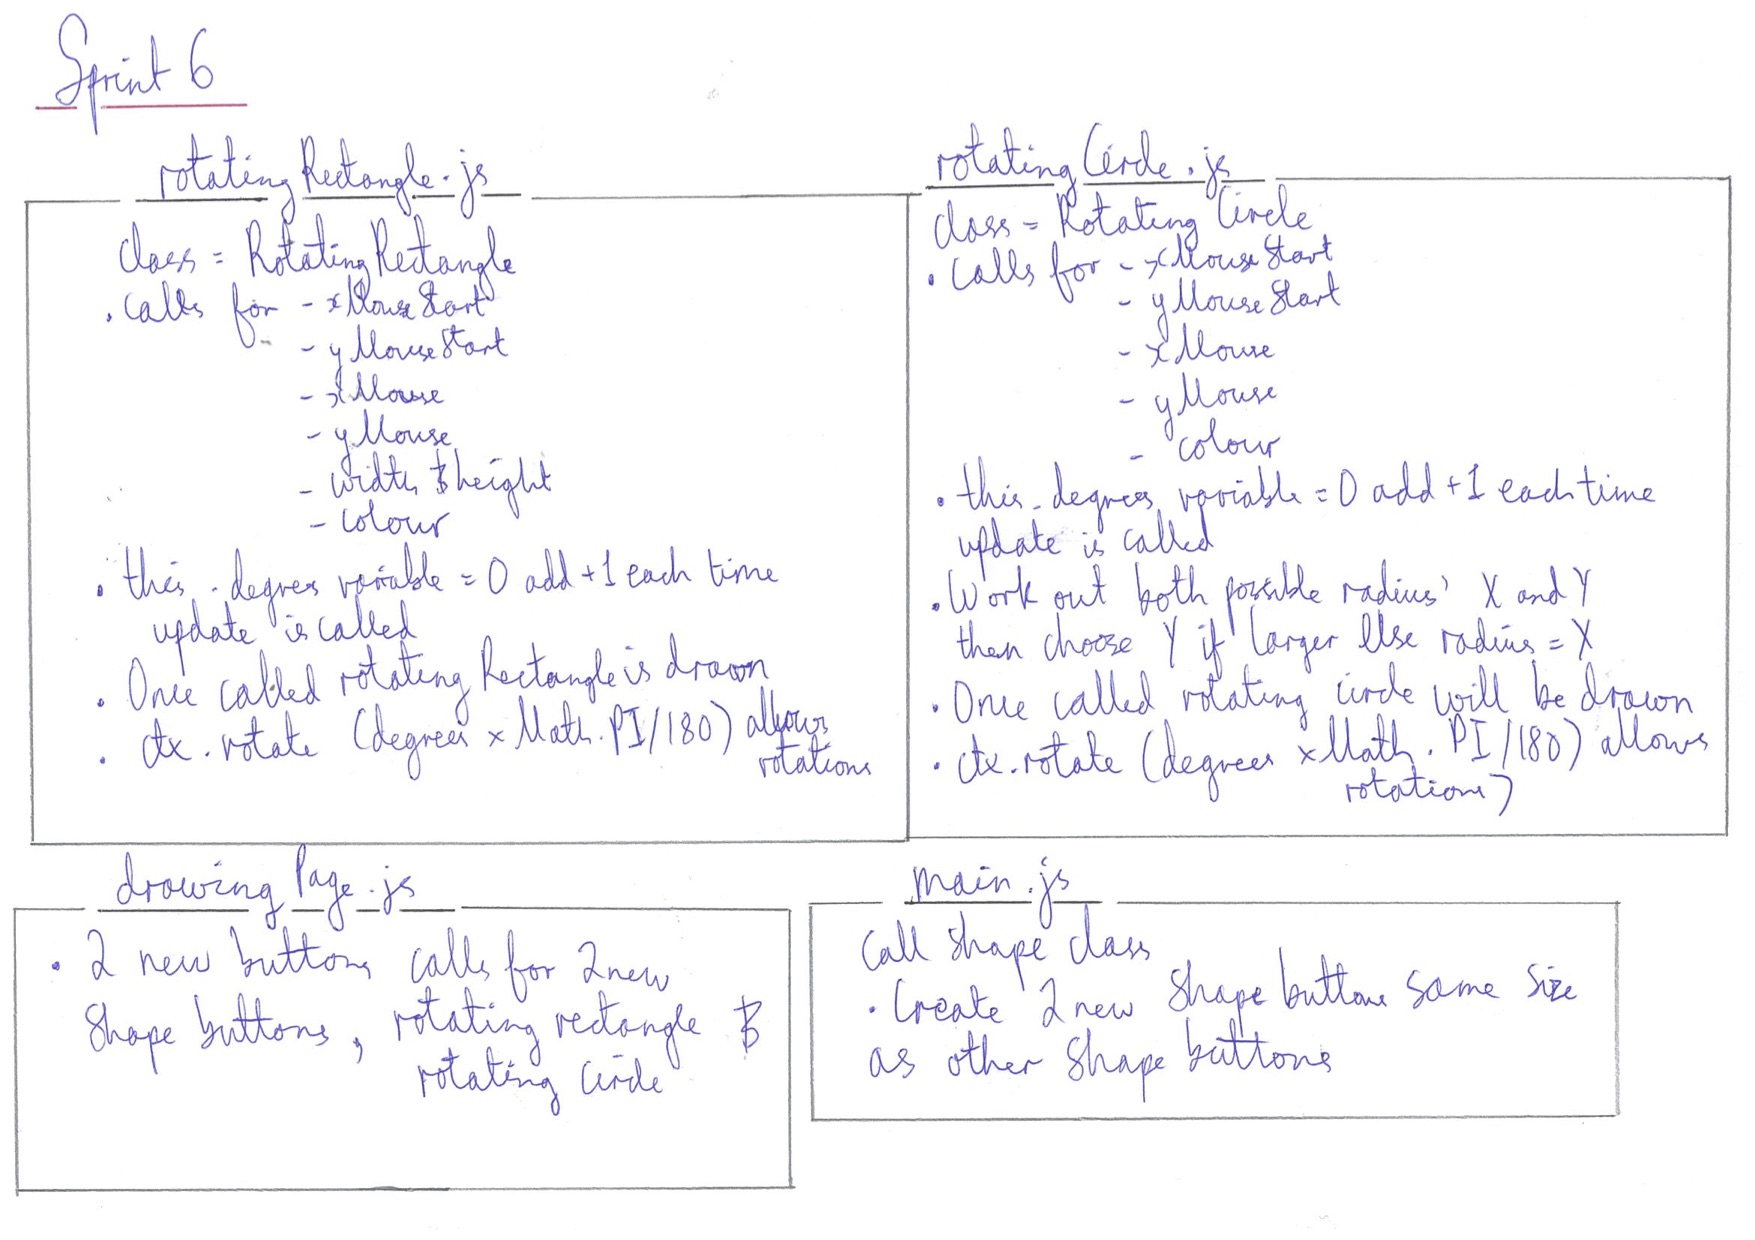 Sprint 6
rotatingRectangle.js
class = RotatingRectangle
. calls for - xMouseStart
- yMouseStart
- xMouse
- yMouse
- width & height
- colour
. this.degrees variable = 0 add +1 each time
update is called
. Once called rotating Rectangle is drawn
. ctx.rotate (degrees x Math.PI/180) allows
rotations
rotatingCircle.js
class = Rotating Circle
. calls for - xMouseStart
- yMouseStart
- xMouse
- yMouse
- colour
. this.degrees variable = 0 add +1 each time
update is called
. Work out both possible radius' X and Y
then choose Y if larger else radius = X
. Once called rotating circle will be drawn
. ctx.rotate (degrees x Math.PI/180) allows
rotations)
drawingPage.js
. 2 new buttons calls for 2 new
shape buttons, rotating rectangle &
rotating circle
main.js
Call shape class
. Create 2 new shape buttons same size
as other shape buttons